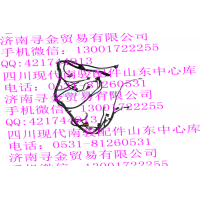 济南寻金贸易有限公司
手机微信：13001722255
四川现代南骏配件山东中心库
电话：0531-81260531
济南寻金贸易有限公司
手机微信：13001722255
四川现代南骏配件山东中心库
电话：0531-81260531
济南寻金贸易有限公司
手机微信：13001722255